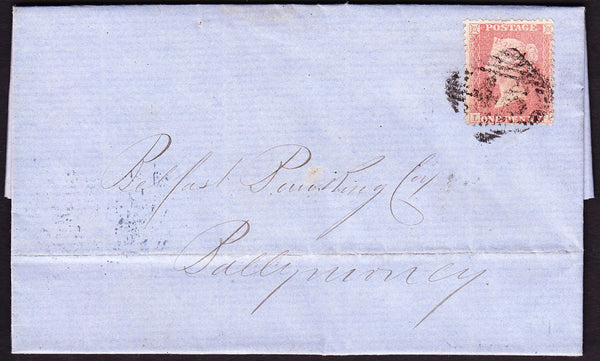 POSTAGE
ONE PENNY
Belfast Banking Coy
Ballymoney.